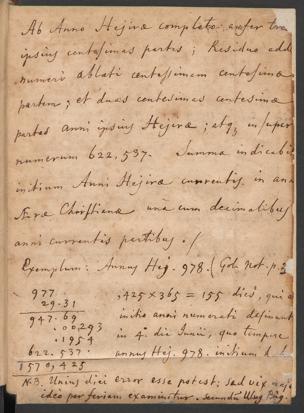 Ab Anno Hejiræ completo aufer tres
ipsius centesimas partes; Residuo adde
numeri ablati centesimam centesimæ
partem; et duas centesimas centesimæ
partes anni ipsius Hejiræ; atq, insuper
numerum 622,537. Summa indicabit
initium Anni Hejiræ currentis in anno
Æræ Christianæ una cum decimalibus
anni currentis partibus.
Exemplum: Annus Hej. 978. (Goh Not. p.
977 ,425 x 365 = 155 dies, qui a
29.31 initio anni numerati desinunt
947.69 in 4. die Junii, quo tempore
.00,293 annus Hej. 978. initium
.1954
622.537.
1570,425
N.B. Unius diei error esse potest; sed vix major
ideo per feriam examinetur. secundum Ulug Beg.